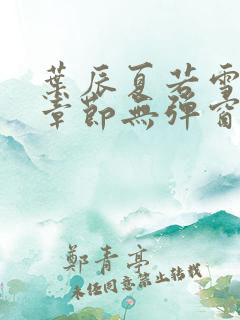 葉辰夏若雪
章節無彈窗
鄭青亭
未经同意禁止转载